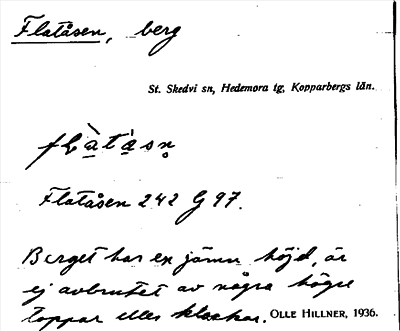 Flatåsen, berg
St. Skedvi sn, Hedemora tg, Kopparbergs län.
Flatåsen 242 G 97.
Berget har en jämn höjd, är
ej avbrutet av några högre
toppar eller klackar. OLLE HILLNER, 1936.